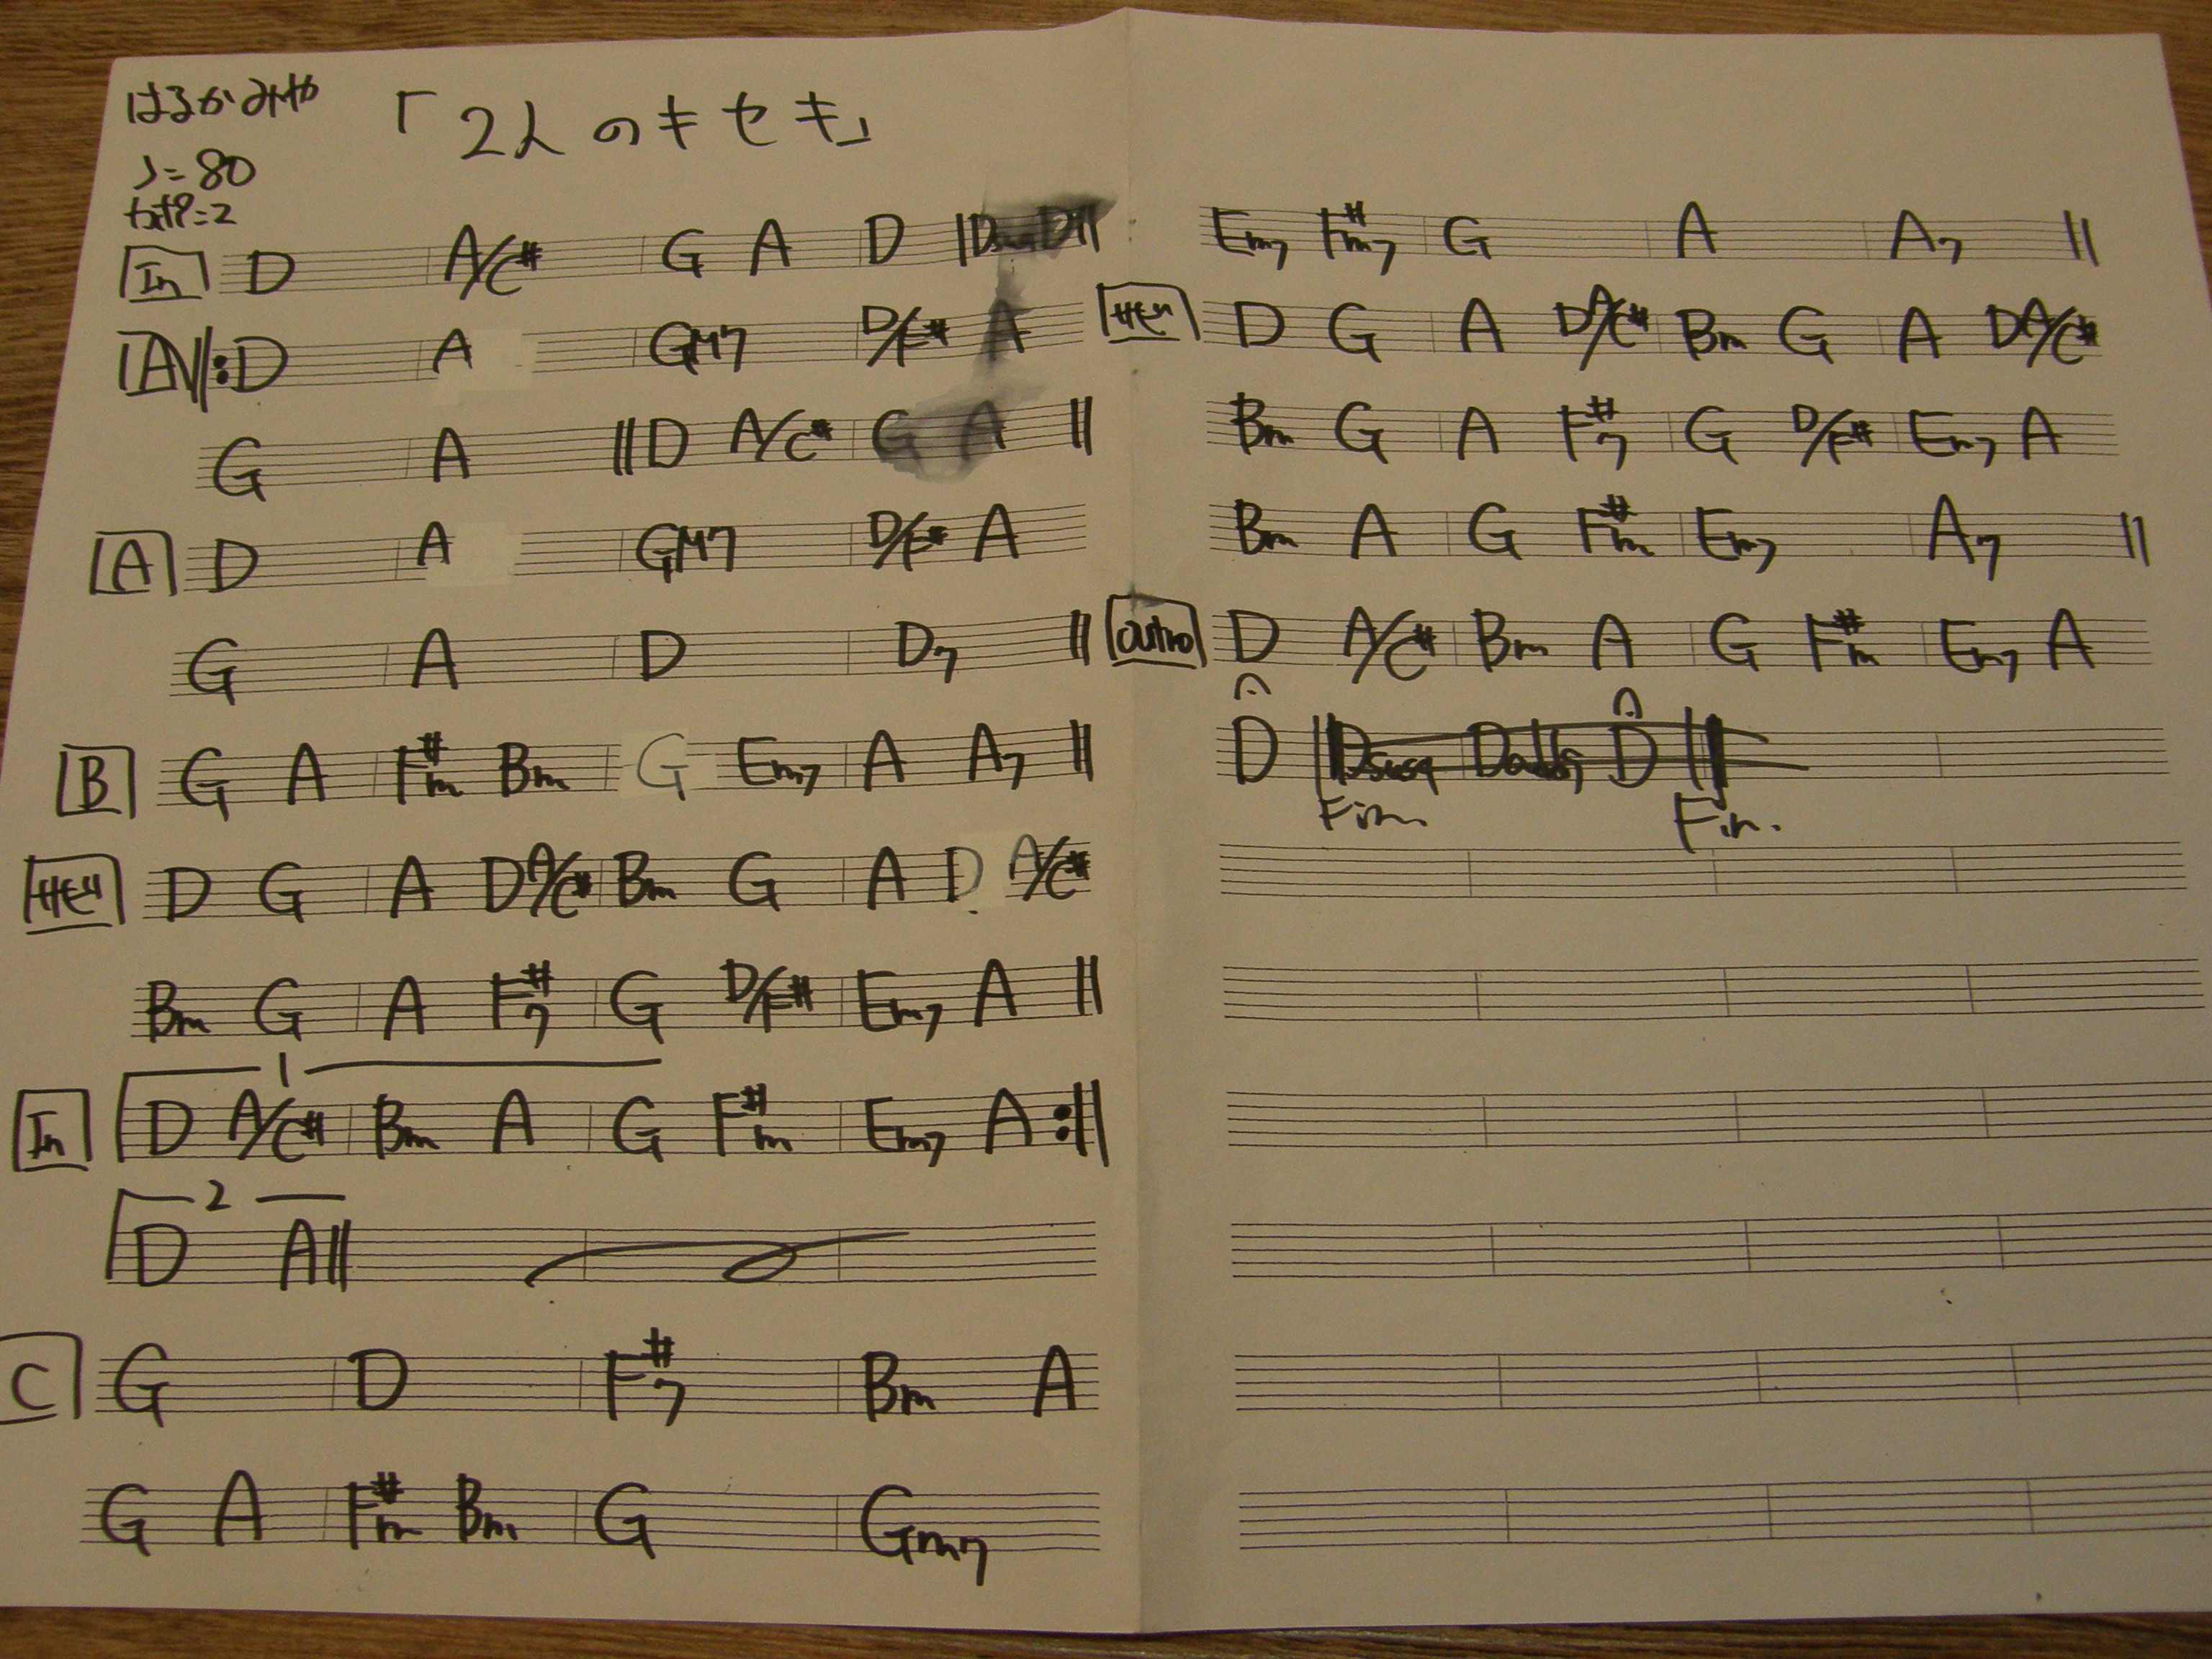 はるかみや 「2人のキセキ」
♩=80
カポ=2
In D A/C# G A D
A D A GM7 D/F# A
G A D A/C# G A
A D A GM7 D/F# A
G A D D7
B G A F#m Bm G Em7 A A7
サビ D G A D A/C# Bm G A D A/C#
Bm G A F#7 G D/F# Em7 A
1
In D A/C# Bm A G F#m Em7 A
2
D A
C G D F#7 Bm A
G A F#m Bm G Gm7
Em7 F#m7 G A A7
サビ D G A D A/C# Bm G A D A/C#
Bm G A F#7 G D/F# Em7 A
Bm A G F#m Em7 A7
Outro D A/C# Bm A G F#m Em7 A
D Dsus4 D
Fin. Fin.